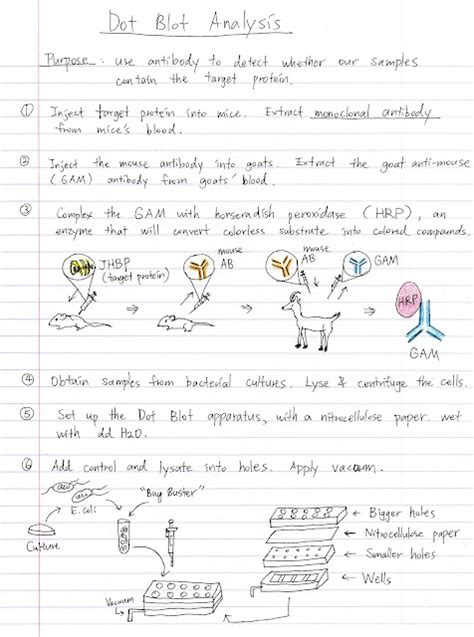 Dot Blot Analysis
Purpose : use antibody to detect whether our samples
contain the target protein.
① Inject target protein into mice. Extract monoclonal antibody
from mice's blood.
② Inject the mouse antibody into goats. Extract the goat anti-mouse
(GAM) antibody from goats' blood.
③ Complex the GAM with horseradish peroxidase (HRP), an
enzyme that will convert colorless substrate into colored compounds.
JHBP
(target protein)
mouse
AB
mouse
AB
GAM
HRP
GAM
④ Obtain samples from bacterial cultures. Lyse & centrifuge the cells.
⑤ Set up the Dot Blot apparatus, with a nitrocellulose paper wet
with dd H2O.
⑥ Add control and lysate into holes. Apply vacuum.
E.coli
"Bug Buster"
Culture
Vacuum
← Bigger holes
← Nitrocellulose paper
← Smaller holes
← Wells